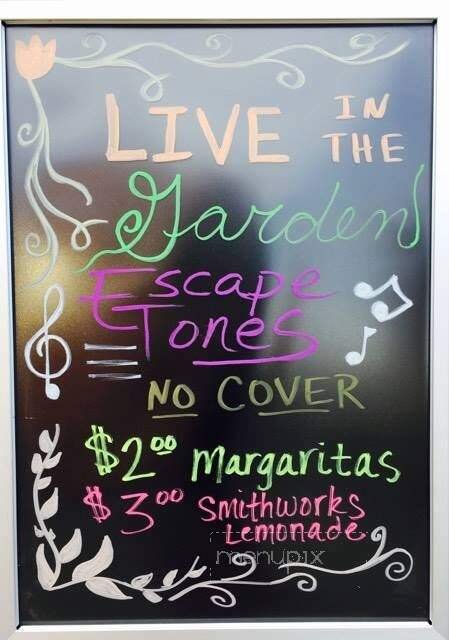 LIVE IN THE
Garden
Escape
Tones
NO COVER
$2.00 Margaritas
$3.00 Smithworks
Lemonade
menupix